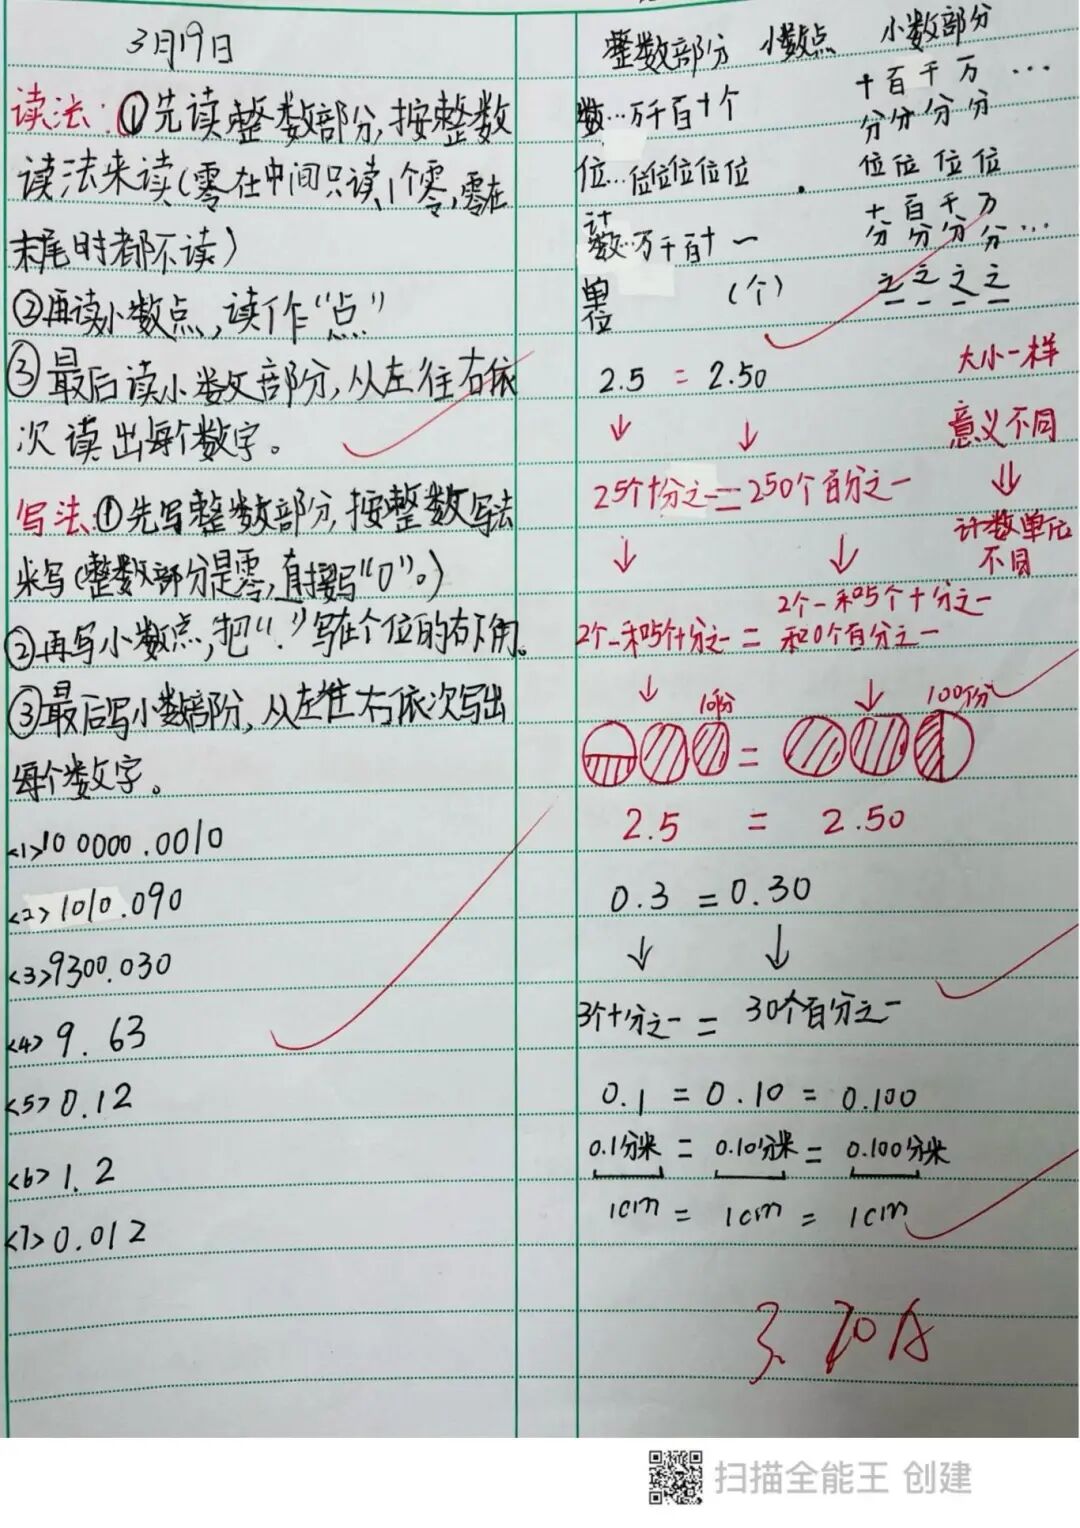 3月19日
读法:①先读整数部分,按整数
读法来读(零在中间只读1个零,零在
末尾时都不读)
②再读小数点,读作“点”
③最后读小数部分,从左往右依
次读出每个数字。
写法:①先写整数部分,按整数写法
来写(整数部分是零,直接写“0”。)
②再写小数点,把“.”写在个位的右下角。
③最后写小数部分,从左往右依次写出
每个数字。
<1>100000.0010
<2>1010.090
<3>9300.030
<4>9.63
<5>0.12
<6>1.2
<7>0.012
整数部分 小数点 小数部分
十百千万…
数…万千百十个
分分分分
位…位位位位位 . 位位位位
计 十百千万
数…万千百十一 分分分分…
单 (个) 之之之之
位 一一一一
2.5 = 2.50 大小一样
↓ ↓ 意义不同
25个十分之一=250个百分之一 ⇓
↓ ↓ 计数单位
不同
2个一和5个十分之一
2个一和5个十分之一 = 和0个百分之一
↓ 10份 ↓ 100份
=
2.5 = 2.50
0.3 = 0.30
↓ ↓
3个十分之一 = 30个百分之一
0.1 = 0.10 = 0.100
0.1分米 = 0.10分米 = 0.100分米
1cm = 1cm = 1cm
3.20A
扫描全能王 创建